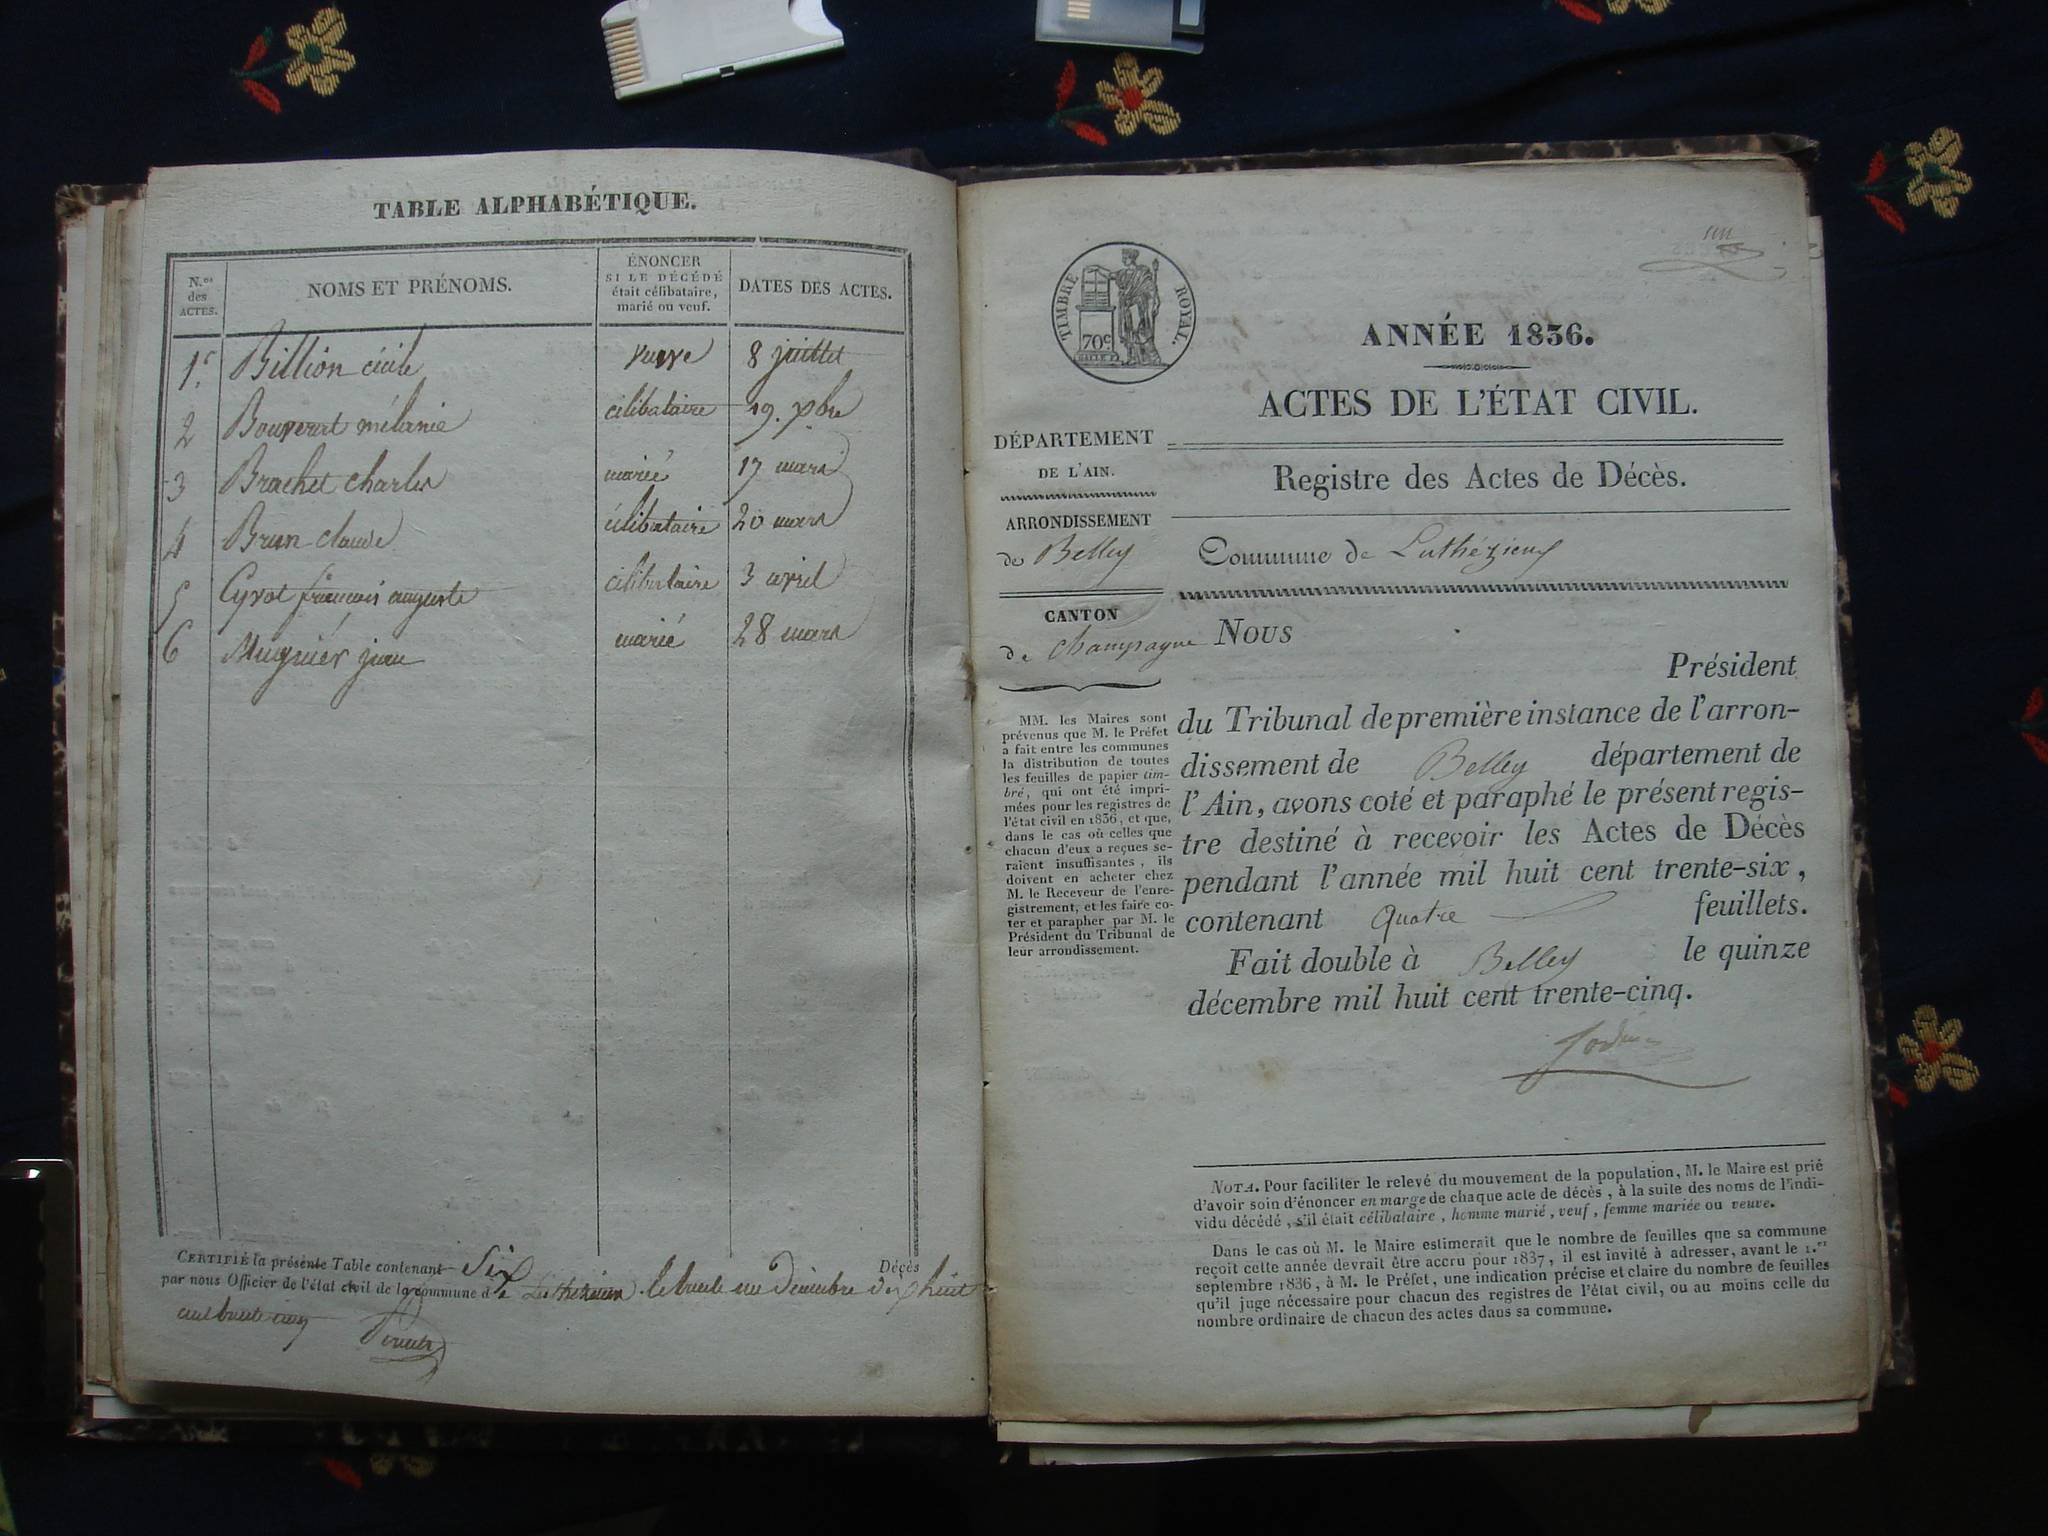 TABLE ALPHABÉTIQUE.
N.os des ACTES.
NOMS ET PRÉNOMS.
ÉNONCER
SI LE DÉCÉDÉ
était célibataire,
marié ou veuf.
DATES DES ACTES.
1.r Billion cécile veuve 8 juillet
2 Bouverat mélanie célibataire 19. xbre
3 Brachet charles marié 17 mars
4 Brun claude célibataire 20 mars
5 Cyvot francois auguste célibataire 3 avril
6 Mugnier jean marié 28 mars
CERTIFIÉ la présente Table contenant Six Décès
par nous Officier de l'état civil de la commune de Luthézieu le trente un décembre dix huit
cent trente cinq
TIMBRE ROYAL.
70c
ANNÉE 1836.
ACTES DE L'ÉTAT CIVIL.
DÉPARTEMENT
DE L'AIN.
Registre des Actes de Décès.
ARRONDISSEMENT
de Belley
Commune de Luthézieu
CANTON
de Champagne
MM. les Maires sont
prévenus que M. le Préfet
a fait entre les communes
la distribution de toutes
les feuilles de papier tim-
bré, qui ont été impri-
mées pour les registres de
l'état civil en 1836, et que,
dans le cas où celles que
chacun d'eux a reçues se-
raient insuffisantes, ils
doivent en acheter chez
M. le Receveur de l'enre-
gistrement, et les faire co-
ter et parapher par M. le
Président du Tribunal de
leur arrondissement.
Nous
Président
du Tribunal de première instance de l'arron-
dissement de Belley département de
l'Ain, avons coté et paraphé le présent regis-
tre destiné à recevoir les Actes de Décès
pendant l'année mil huit cent trente-six,
contenant Quatre feuillets.
Fait double à Belley le quinze
décembre mil huit cent trente-cinq.
NOTA. Pour faciliter le relevé du mouvement de la population, M. le Maire est prié
d'avoir soin d'énoncer en marge de chaque acte de décès, à la suite des noms de l'indi-
vidu décédé, s'il était célibataire, homme marié, veuf, femme mariée ou veuve.
Dans le cas où M. le Maire estimerait que le nombre de feuilles que sa commune
reçoit cette année devrait être accru pour 1837, il est invité à adresser, avant le 1.er
septembre 1836, à M. le Préfet, une indication précise et claire du nombre de feuilles
qu'il juge nécessaire pour chacun des registres de l'état civil, ou au moins celle du
nombre ordinaire de chacun des actes dans sa commune.